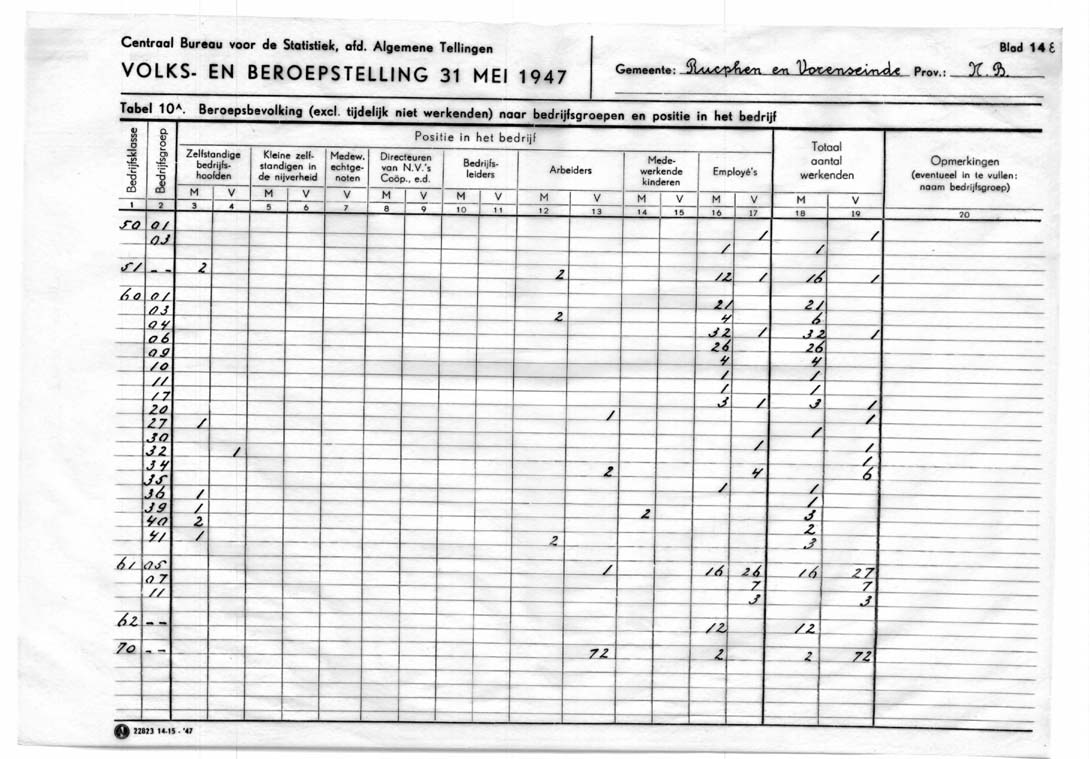 Centraal Bureau voor de Statistiek, afd. Algemene Tellingen
Blad 14 E
VOLKS- EN BEROEPSTELLING 31 MEI 1947
Gemeente: Rucphen en Vorenseinde Prov.: N.B.
Tabel 10A. Beroepsbevolking (excl. tijdelijk niet werkenden) naar bedrijfsgroepen en positie in het bedrijf
Bedrijfsklasse
Bedrijfsgroep
Positie in het bedrijf
Zelfstandige bedrijfs-hoofden
Kleine zelf-standigen in de nijverheid
Medew. echtge-noten
Directeuren van N.V.'s Coöp., e.d.
Bedrijfs-leiders
Arbeiders
Mede-werkende kinderen
Employé's
Totaal aantal werkenden
Opmerkingen (eventueel in te vullen: naam bedrijfsgroep)
M V M V V M V M V M V M V M V M V
1 2 3 4 5 6 7 8 9 10 11 12 13 14 15 16 17 18 19 20
50 01 1 1
03 1 1
51 -- 2 2 12 1 16 1
60 01 21 21
03 2 4 6
04 32 1 32 1
06 26 26
09 4 4
10 1 1
11 1 1
17 3 1 3 1
20 1 1
27 1 1
30 1 1
32 1 1
34 2 4 6
35 1 1
36 1 1
39 1 2 3
40 2 2
41 1 2 3
61 05 1 16 26 16 27
07 7 7
11 3 3
62 -- 12 12
70 -- 72 2 2 72
22823 14-15 - '47